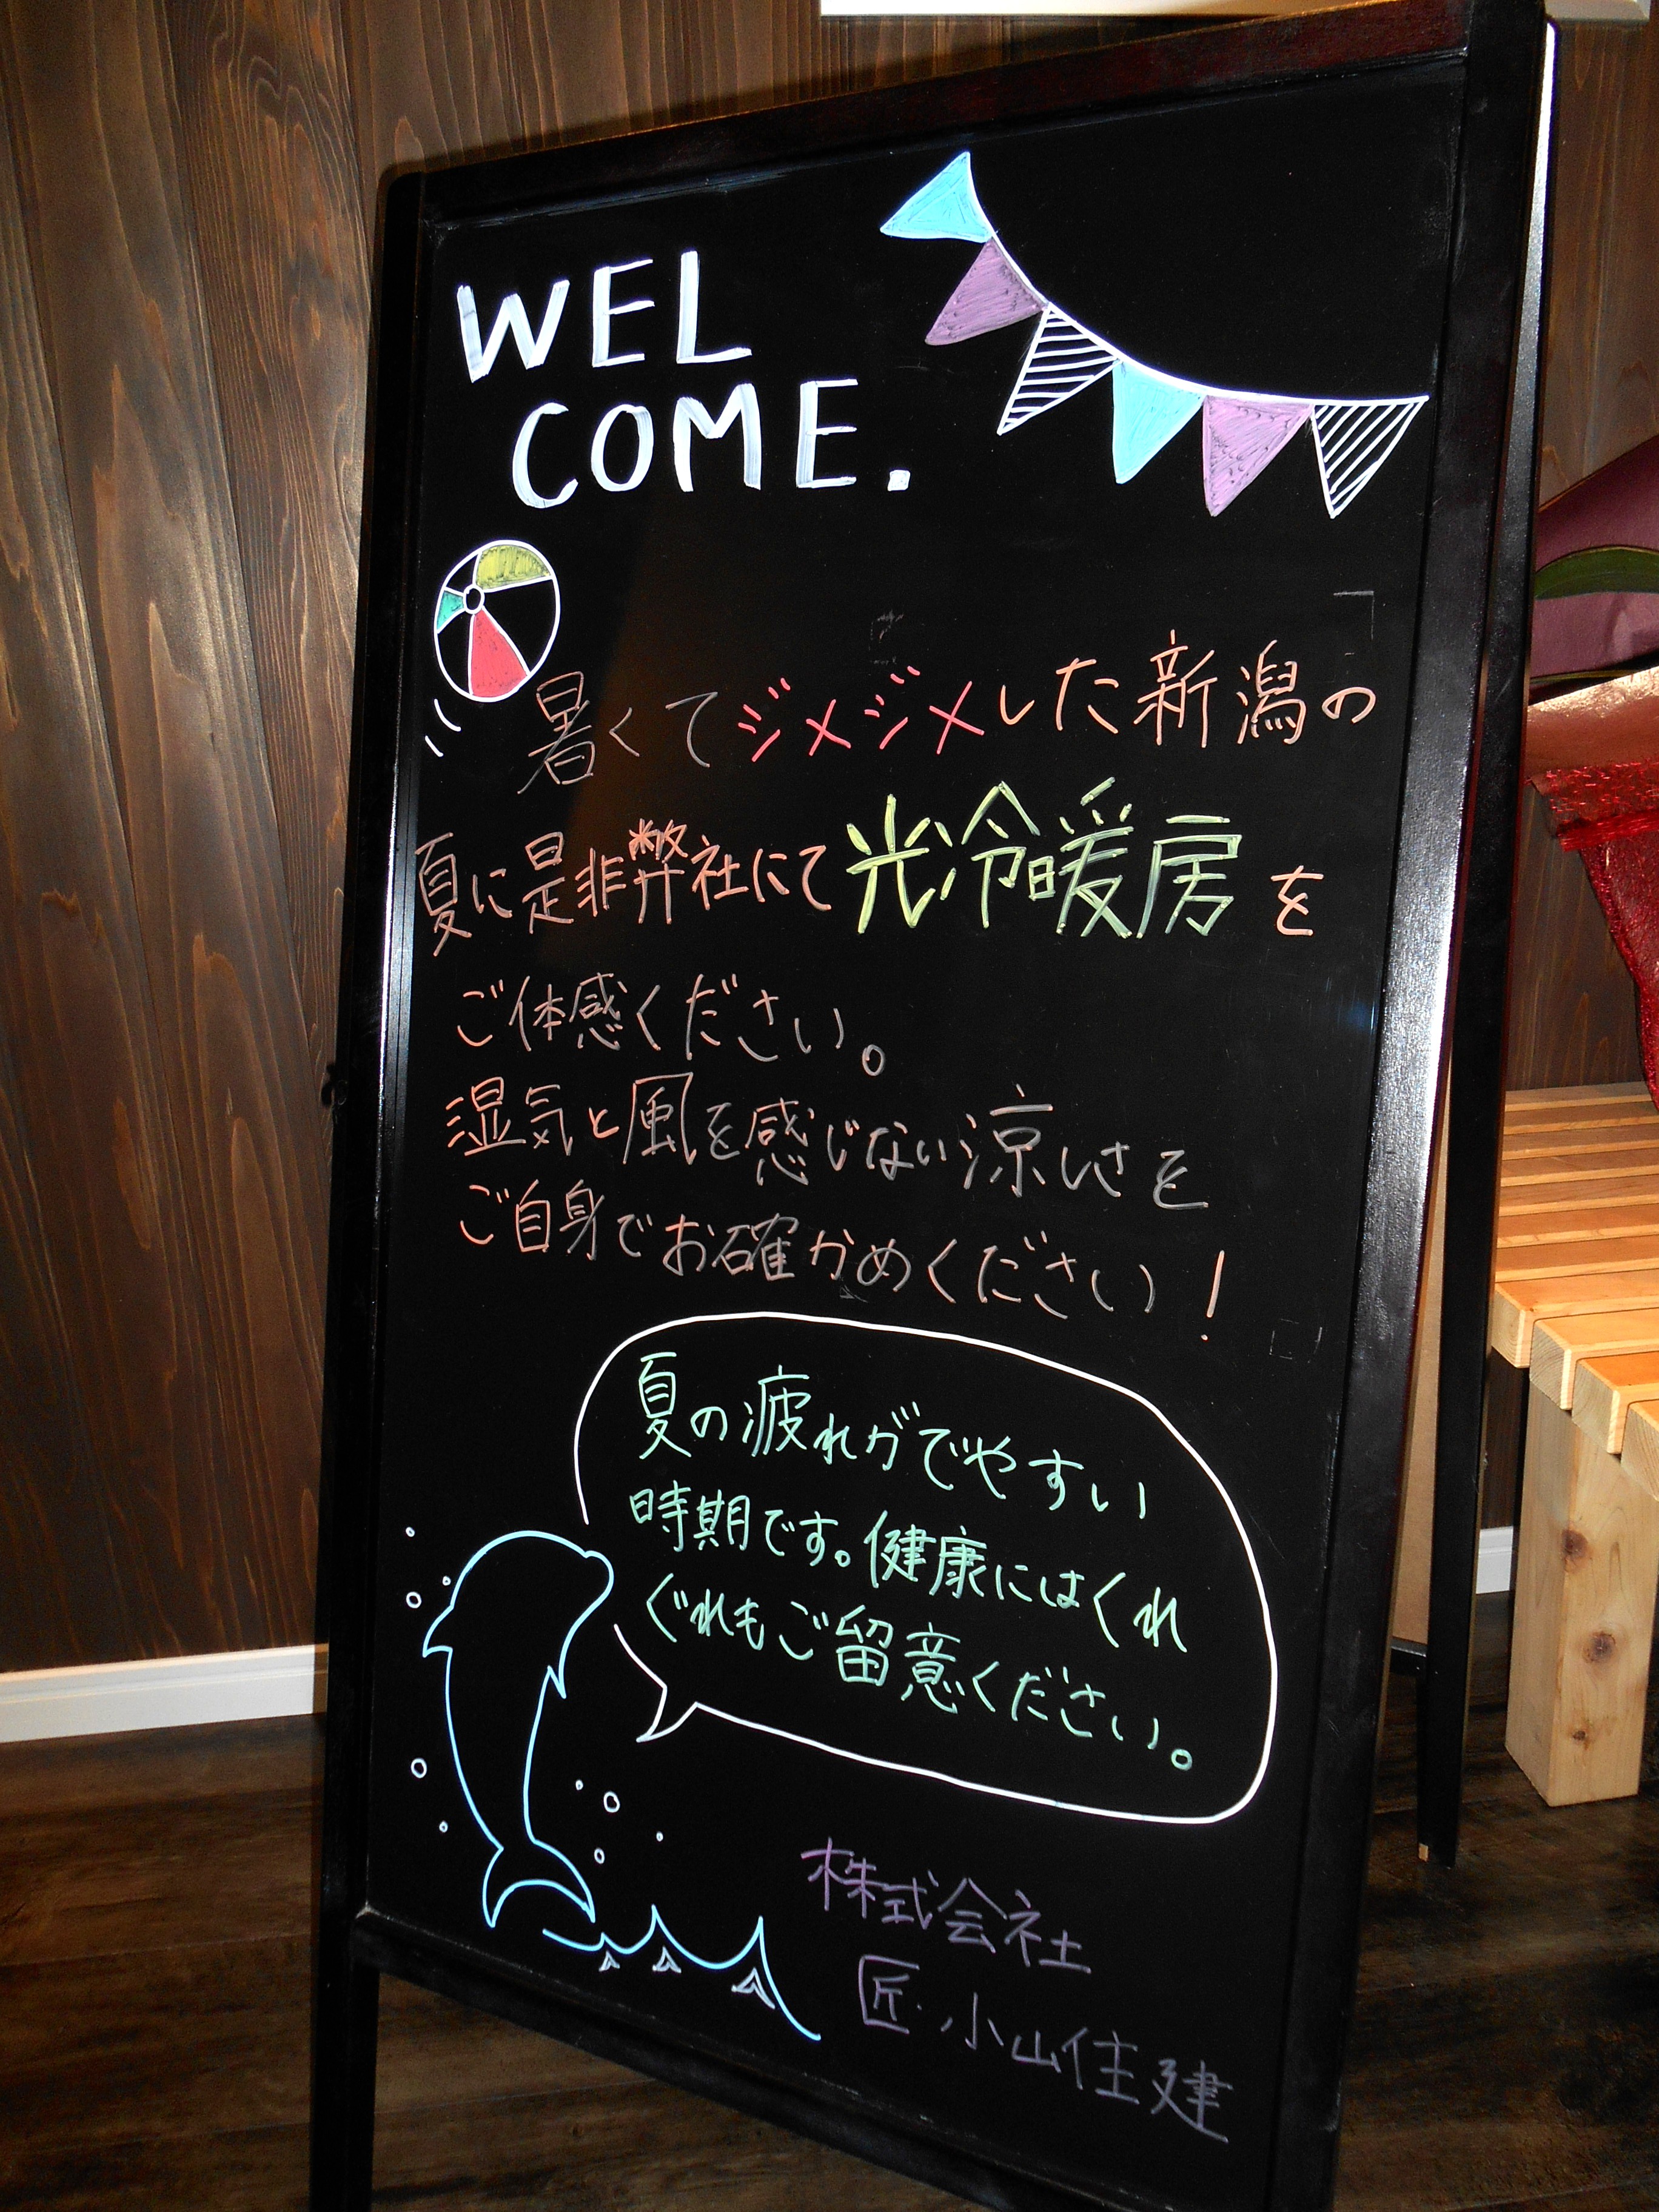 WEL
COME.
暑くてジメジメした新潟の
夏に是非弊社にて光冷暖房を
ご体感ください。
湿気と風を感じない涼しさを
ご自身でお確かめください!
夏の疲れがでやすい
時期です。健康にはくれ
ぐれもご留意ください。
株式会社
匠・小山住建